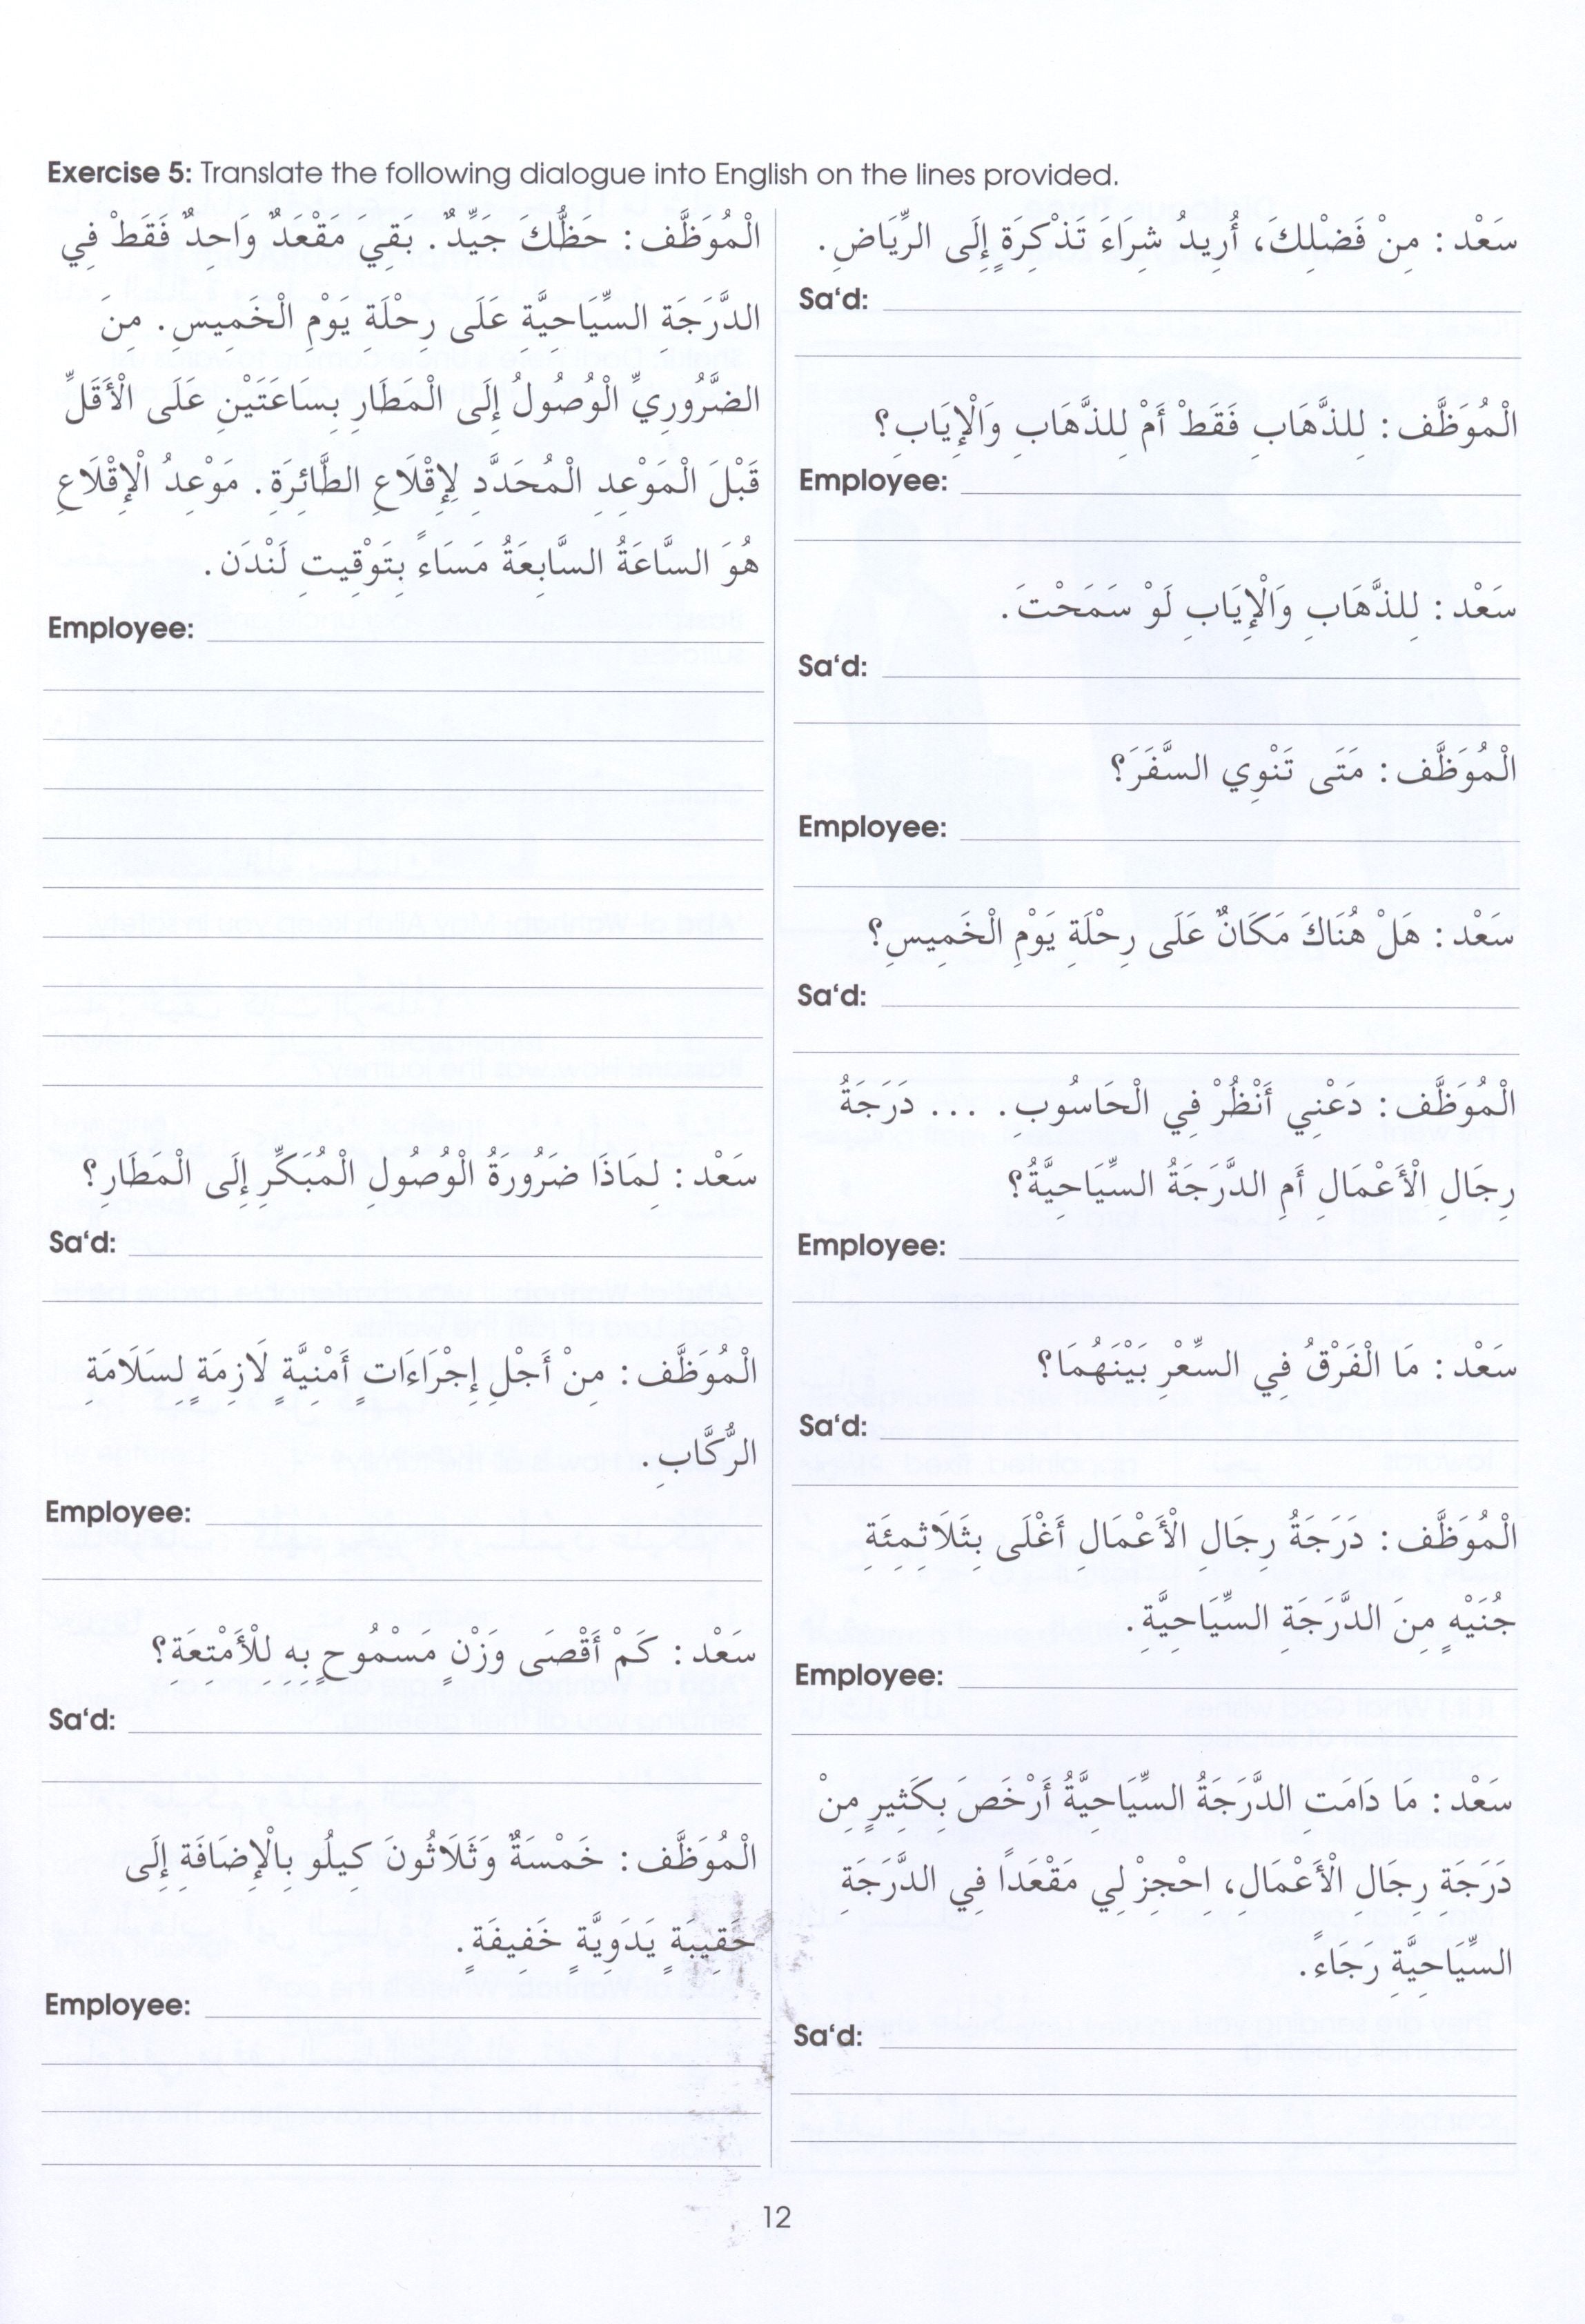 Exercise 5: Translate the following dialogue into English on the lines provided.
سَعْد : مِنْ فَضْلِكَ، أُرِيدُ شِرَاءَ تَذْكِرَةٍ إِلَى الرِّيَاضِ.
Sa‘d:
الْمُوَظَّف : لِلذَّهَابِ فَقَطْ أَمْ لِلذَّهَابِ وَالْإِيَابِ؟
Employee:
سَعْد : لِلذَّهَابِ وَالْإِيَابِ لَوْ سَمَحْتَ.
Sa‘d:
الْمُوَظَّف : مَتَى تَنْوِي السَّفَرَ؟
Employee:
سَعْد : هَلْ هُنَاكَ مَكَانٌ عَلَى رِحْلَةِ يَوْمِ الْخَمِيسِ؟
Sa‘d:
الْمُوَظَّف : دَعْنِي أَنْظُرْ فِي الْحَاسُوبِ. ... دَرَجَةُ
رِجَالِ الْأَعْمَالِ أَمِ الدَّرَجَةُ السِّيَاحِيَّةُ؟
Employee:
سَعْد : مَا الْفَرْقُ فِي السِّعْرِ بَيْنَهُمَا؟
Sa‘d:
الْمُوَظَّف : دَرَجَةُ رِجَالِ الْأَعْمَالِ أَغْلَى بِثَلَاثِمِئَةِ
جُنَيْهٍ مِنَ الدَّرَجَةِ السِّيَاحِيَّةِ.
Employee:
سَعْد : مَا دَامَتِ الدَّرَجَةُ السِّيَاحِيَّةُ أَرْخَصَ بِكَثِيرٍ مِنْ
دَرَجَةِ رِجَالِ الْأَعْمَالِ، اِحْجِزْ لِي مَقْعَداً فِي الدَّرَجَةِ
السِّيَاحِيَّةِ رَجَاءً.
Sa‘d:
الْمُوَظَّف : حَظُّكَ جَيِّدٌ. بَقِيَ مَقْعَدٌ وَاحِدٌ فَقَطْ فِي
الدَّرَجَةِ السِّيَاحِيَّةِ عَلَى رِحْلَةِ يَوْمِ الْخَمِيسِ. مِنَ
الضَّرُورِيِّ الْوُصُولُ إِلَى الْمَطَارِ بِسَاعَتَيْنِ عَلَى الْأَقَلِّ
قَبْلَ الْمَوْعِدِ الْمُحَدَّدِ لِإِقْلَاعِ الطَّائِرَةِ. مَوْعِدُ الْإِقْلَاعِ
هُوَ السَّاعَةُ السَّابِعَةُ مَسَاءً بِتَوْقِيتِ لَنْدَن.
Employee:
سَعْد : لِمَاذَا ضَرُورَةُ الْوُصُولِ الْمُبَكِّرِ إِلَى الْمَطَارِ؟
Sa‘d:
الْمُوَظَّف : مِنْ أَجْلِ إِجْرَاءَاتٍ أَمْنِيَّةٍ لَازِمَةٍ لِسَلَامَةِ
الرُّكَّابِ.
Employee:
سَعْد : كَمْ أَقْصَى وَزْنٍ مَسْمُوحٍ بِهِ لِلْأَمْتِعَةِ؟
Sa‘d:
الْمُوَظَّف : خَمْسَةٌ وَثَلَاثُونَ كِيلُو بِالْإِضَافَةِ إِلَى
حَقِيبَةٍ يَدَوِيَّةٍ خَفِيفَةٍ.
Employee:
12